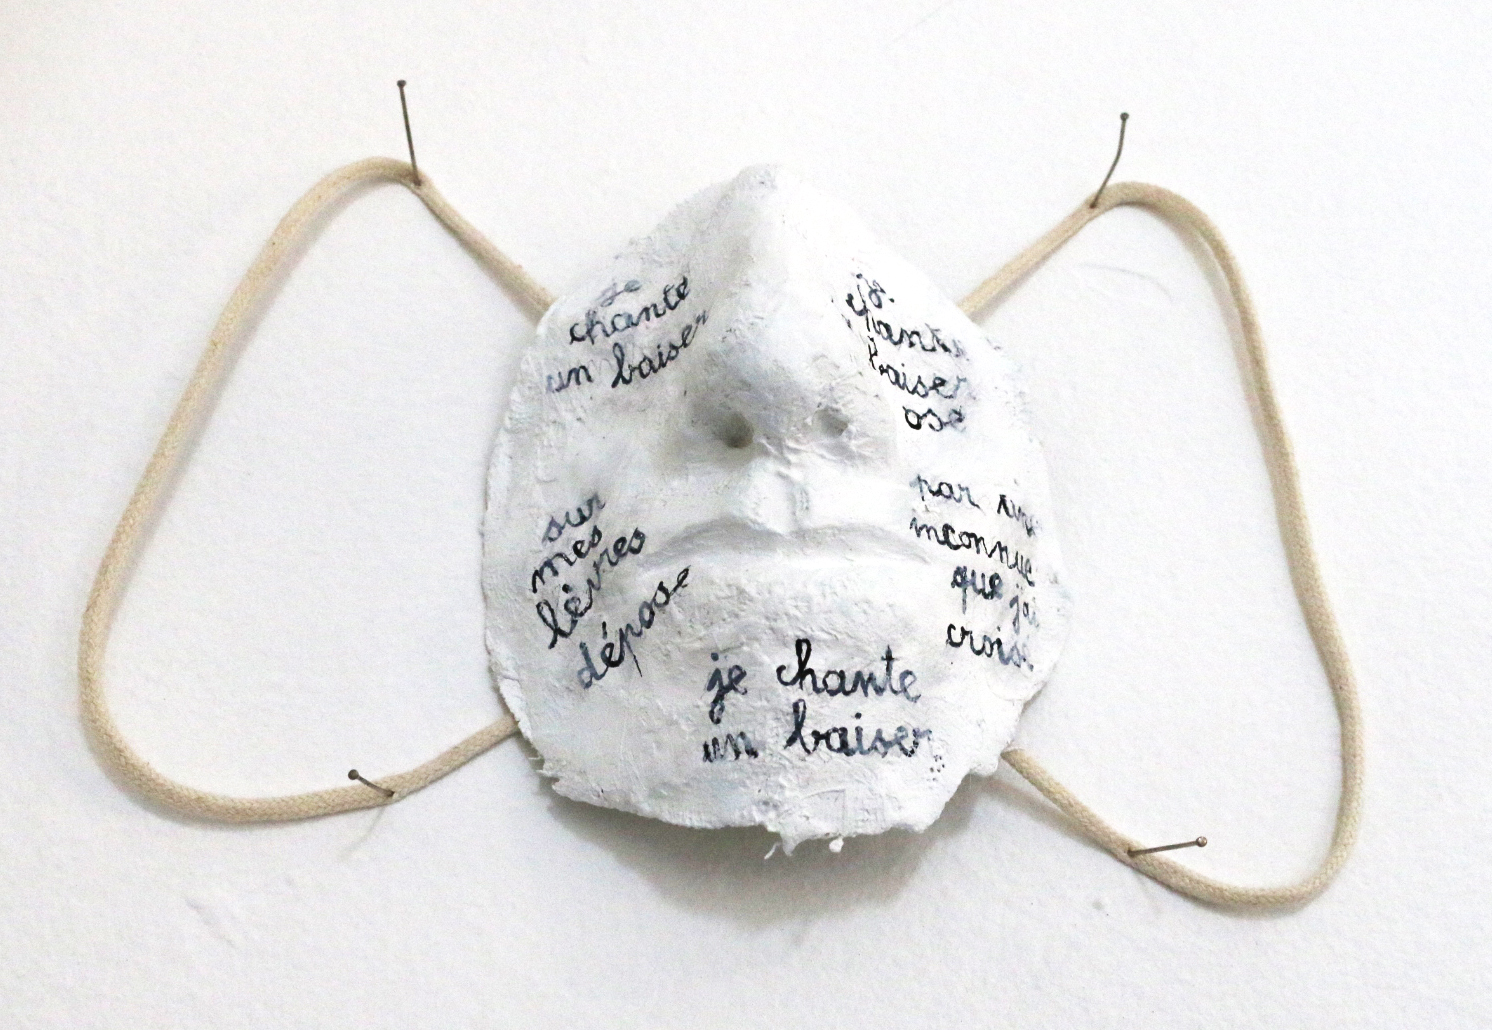 je
chante
un baiser
je
chante
baiser
osé
sur
mes
lèvres
déposé
par une
inconnue
que j'ai
croisé
je chante
un baiser